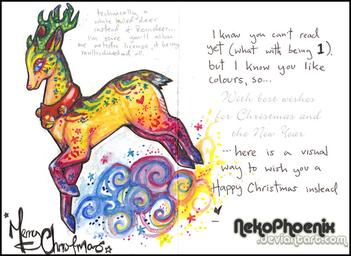 technically a
white tailed deer
instead of Reindeer...
I'm sure you'll allow
me artistic license, it being
multicoloured & all.
I know you can't read
yet (what with being 1),
but I know you like
colours, so...
With best wishes
for Christmas and
the New Year
...here is a visual
way to wish you a
Happy Christmas instead
Merry
Christmas
NekoPhoenix
.deviantart.com